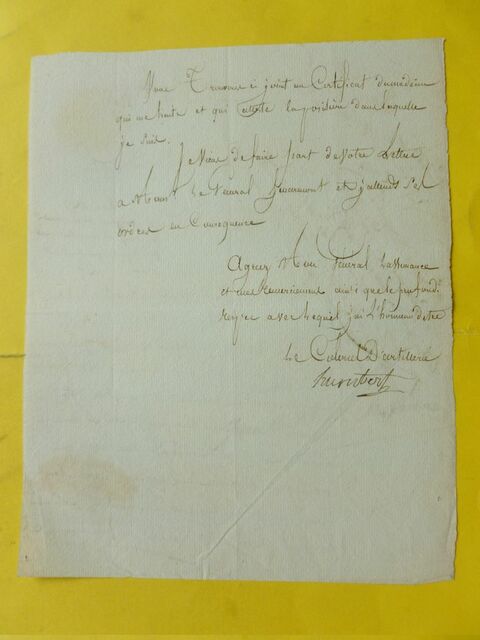 Vous Trouverez ci joint un Certificat du médecin
qui me traite et qui atteste la position dans laquelle
je suis.
Je viens de faire part de votre Lettre
a Mons le Général et j'attends ses
ordres en Conséquence
Agreez Mon Général Lassurance
et mes remerciements ainsi que le profond
respec avec lequel jai L'honneur detre
Le Colonel D'artillerie